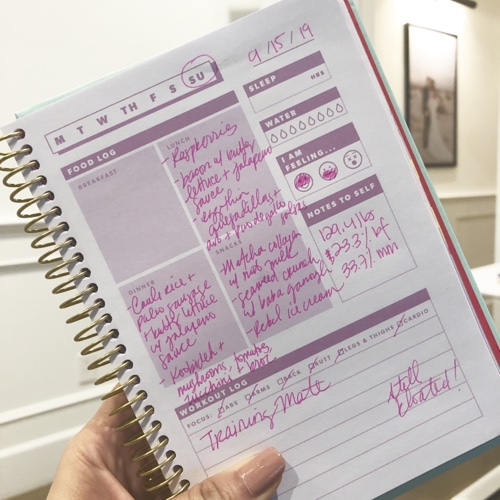 9/15/19
M T W TH F S SU
SLEEP
HRS
WATER
I AM
FEELING...
NOTES TO SELF
129.4 lbs
33.7% mm
FOOD LOG
BREAKFAST
LUNCH
- Raspberries
- bacon w/ butter
lettuce + jalapeno
sauce
- egg thin
quesadillas +
avo + pico de gallo salsa
SNACKS
- Matcha collagen
w/ nut milk
- seaweed crunch
w/ baba ganoush
- Rebel ice cream
DINNER
- Cauli rice +
paleo sausage
+ butter lettuce
w/ jalapeno
sauce
- Kohlrabi +
mushrooms, tomato,
zucchini +
WORKOUT LOG
FOCUS: ABS ARMS BACK BUTT LEGS & THIGHS CARDIO
Training Mate
Still
bloated!